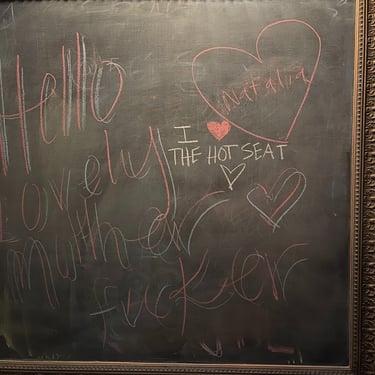 Hello
Natalia
I ♥
THE HOT SEAT
lovely
muther
fucker